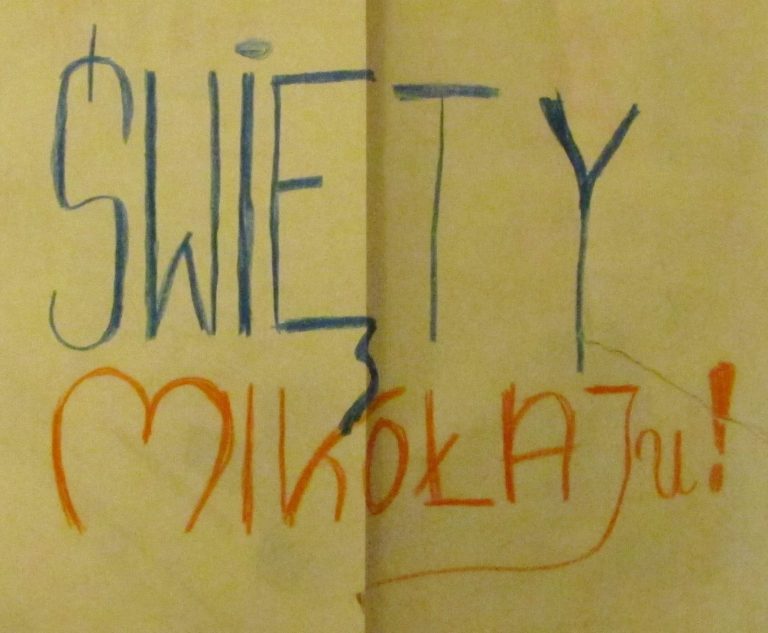 ŚWIĘTY
MIKOŁAJu!